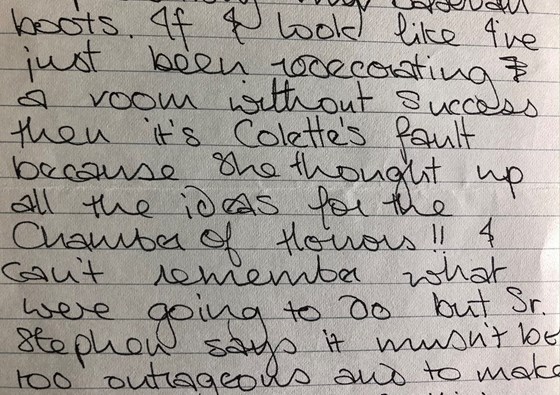 boots. If I look like I've
just been redecorating
a room without success
then it's Colette's fault
because she thought up
all the ideas for the
Chamber of Horrors!! I
can't remember what
were going to do but Sr.
Stephen says it musn't be
too outrageous and to make